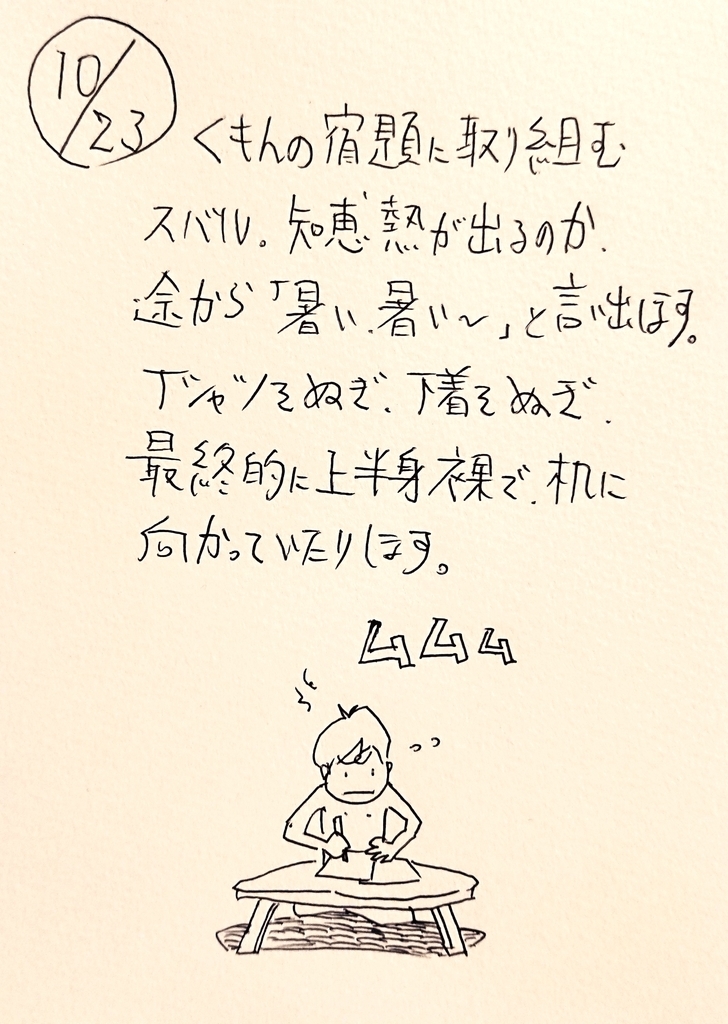 10/23
くもんの宿題に取り組む
スバル。知恵熱が出るのか、
途から「暑い、暑い〜」と言い出します。
Tシャツをぬぎ、下着をぬぎ、
最終的に上半身裸で、机に
向かっていたりします。
ムムム